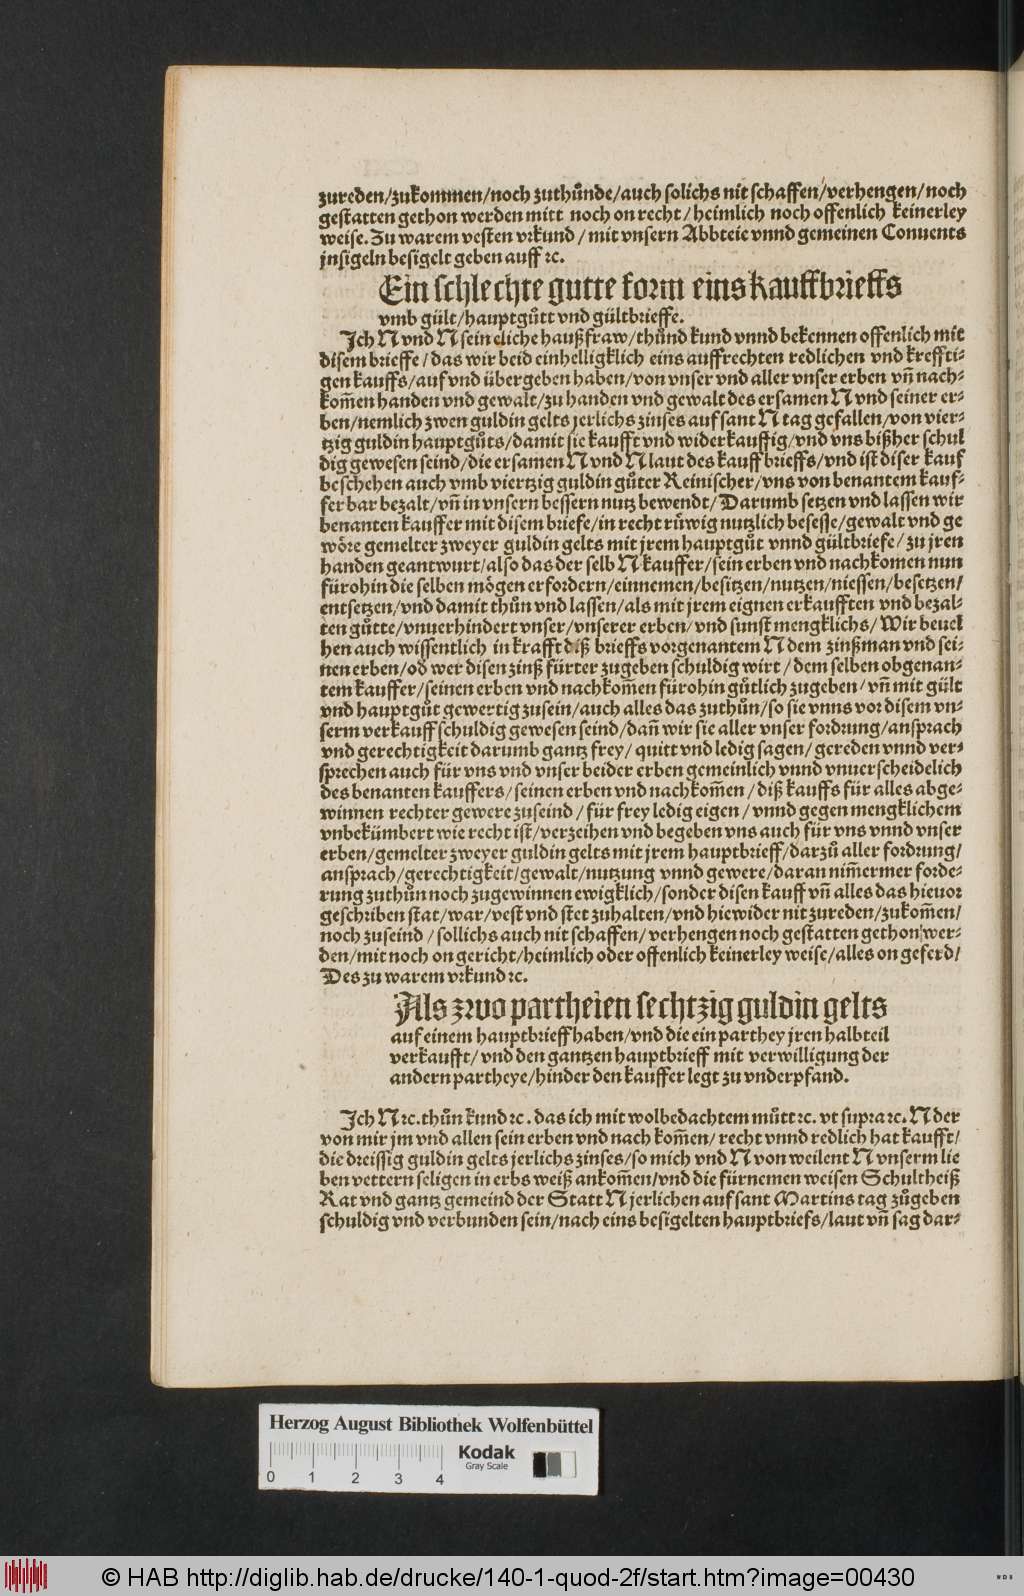 zureden/zukommen/noch zuthůnde/auch solichs nit schaffen/verhengen/noch
gestatten gethon werden mitt noch on recht/heimlich noch offenlich keinerley
weise. Zu warem vesten vrkund/mit vnsern Abbteie vnnd gemeinen Conuents
jnsigeln besigelt geben auff ꝛc.
Ein schlechte gutte form eins kauffbrieffs
vmb gült/hauptgůtt vnd gültbrieffe.
Ich N vnd N sein eliche haußfraw/thůnd kund vnnd bekennen offenlich mit
disem brieffe/das wir beid einhelligklich eins auffrechten redlichen vnd kreffti-
gen kauffs/auf vnd übergeben haben/von vnser vnd aller vnser erben vñ nach-
kom̃en handen vnd gewalt/zu handen vnd gewalt des ersamen N vnd seiner er-
ben/nemlich zwen guldin gelts jerlichs zinses auf sant N tag gefallen/von vier-
tzig guldin hauptgůts/damit sie kaufft vnd widerkauffig/vnd vns bißher schul
dig gewesen seind/die ersamen N vnd N laut des kauffbrieffs/vnd ist diser kauf
beschehen auch vmb viertzig guldin gůter Reinischer/vns von benantem kauf-
fer bar bezalt/vñ in vnsern bessern nutz bewendt/Darumb setzen vnd lassen wir
benanten kauffer mit disem briefe/in recht růwig nutzlich besesse/gewalt vnd ge
wöre gemelter zweyer guldin gelts mit jrem hauptgůt vnnd gültbriefe/zu jren
handen geantwurt/also das der selb N kauffer/sein erben vnd nachkomen nun
fürohin die selben mögen erfordern/einnemen/besitzen/nutzen/niessen/besetzen/
entsetzen/vnd damit thůn vnd lassen/als mit jrem eignen erkaufften vnd bezal-
ten gůtte/vnuerhindert vnser/vnserer erben/vnd sunst mengklichs/Wir beuel
hen auch wissentlich in krafft diß brieffs vorgenantem N dem zinßman vnd sei-
nen erben/od wer disen zinß fürter zugeben schuldig wirt/dem selben obgenan-
tem kauffer/seinen erben vnd nachkom̃en fürohin gůtlich zugeben/vñ mit gült
vnd hauptgůt gewertig zusein/auch alles das zuthůn/so sie vnns vor disem vn-
serm verkauff schuldig gewesen seind/dañ wir sie aller vnser fordrung/ansprach
vnd gerechtigkeit darumb gantz frey/quitt vnd ledig sagen/gereden vnnd ver-
sprechen auch für vns vnd vnser beider erben gemeinlich vnnd vnuerscheidelich
des benanten kauffers/seinen erben vnd nachkom̃en/diß kauffs für alles abge-
winnen rechter gewere zuseind/für frey ledig eigen/vnnd gegen mengklichem
vnbekümbert wie recht ist/verzeihen vnd begeben vns auch für vns vnnd vnser
erben/gemelter zweyer guldin gelts mit jrem hauptbrieff/darzů aller fordrung/
ansprach/gerechtigkeit/gewalt/nutzung vnnd gewere/daran nim̃ermer forde-
rung zuthůn noch zugewinnen ewigklich/sonder disen kauff vñ alles das hieuor
geschriben stat/war/vest vnd stet zuhalten/vnd hiewider nit zureden/zukom̃en/
noch zuseind/sollichs auch nit schaffen/verhengen noch gestatten gethon wer-
den/mit noch on gericht/heimlich oder offenlich keinerley weise/alles on geferd/
Des zu warem vrkund ꝛc.
Als zwo partheien sechtzig guldin gelts
auf einem hauptbrieff haben/vnd die ein parthey jren halbteil
verkaufft/vnd den gantzen hauptbrieff mit verwilligung der
andern partheye/hinder den kauffer legt zu vnderpfand.
Ich N ꝛc. thůn kund ꝛc. das ich mit wolbedachtem můtt ꝛc. vt supra ꝛc. N der
von mir jm vnd allen sein erben vnd nach kom̃en/recht vnnd redlich hat kaufft/
die dreissig guldin gelts jerlichs zinses/so mich vnd N von weilent N vnserm lie
ben vettern seligen in erbs weiß ankom̃en/vnd die fürnemen weisen Schultheiß
Rat vnd gantz gemeind der Statt N jerlichen auf sant Martins tag zůgeben
schuldig vnd verbunden sein/nach eins besigelten hauptbriefs/laut vñ sag dar-
Herzog August Bibliothek Wolfenbüttel
0 1 2 3 4
Kodak
Gray Scale
© HAB http://diglib.hab.de/drucke/140-1-quod-2f/start.htm?image=00430